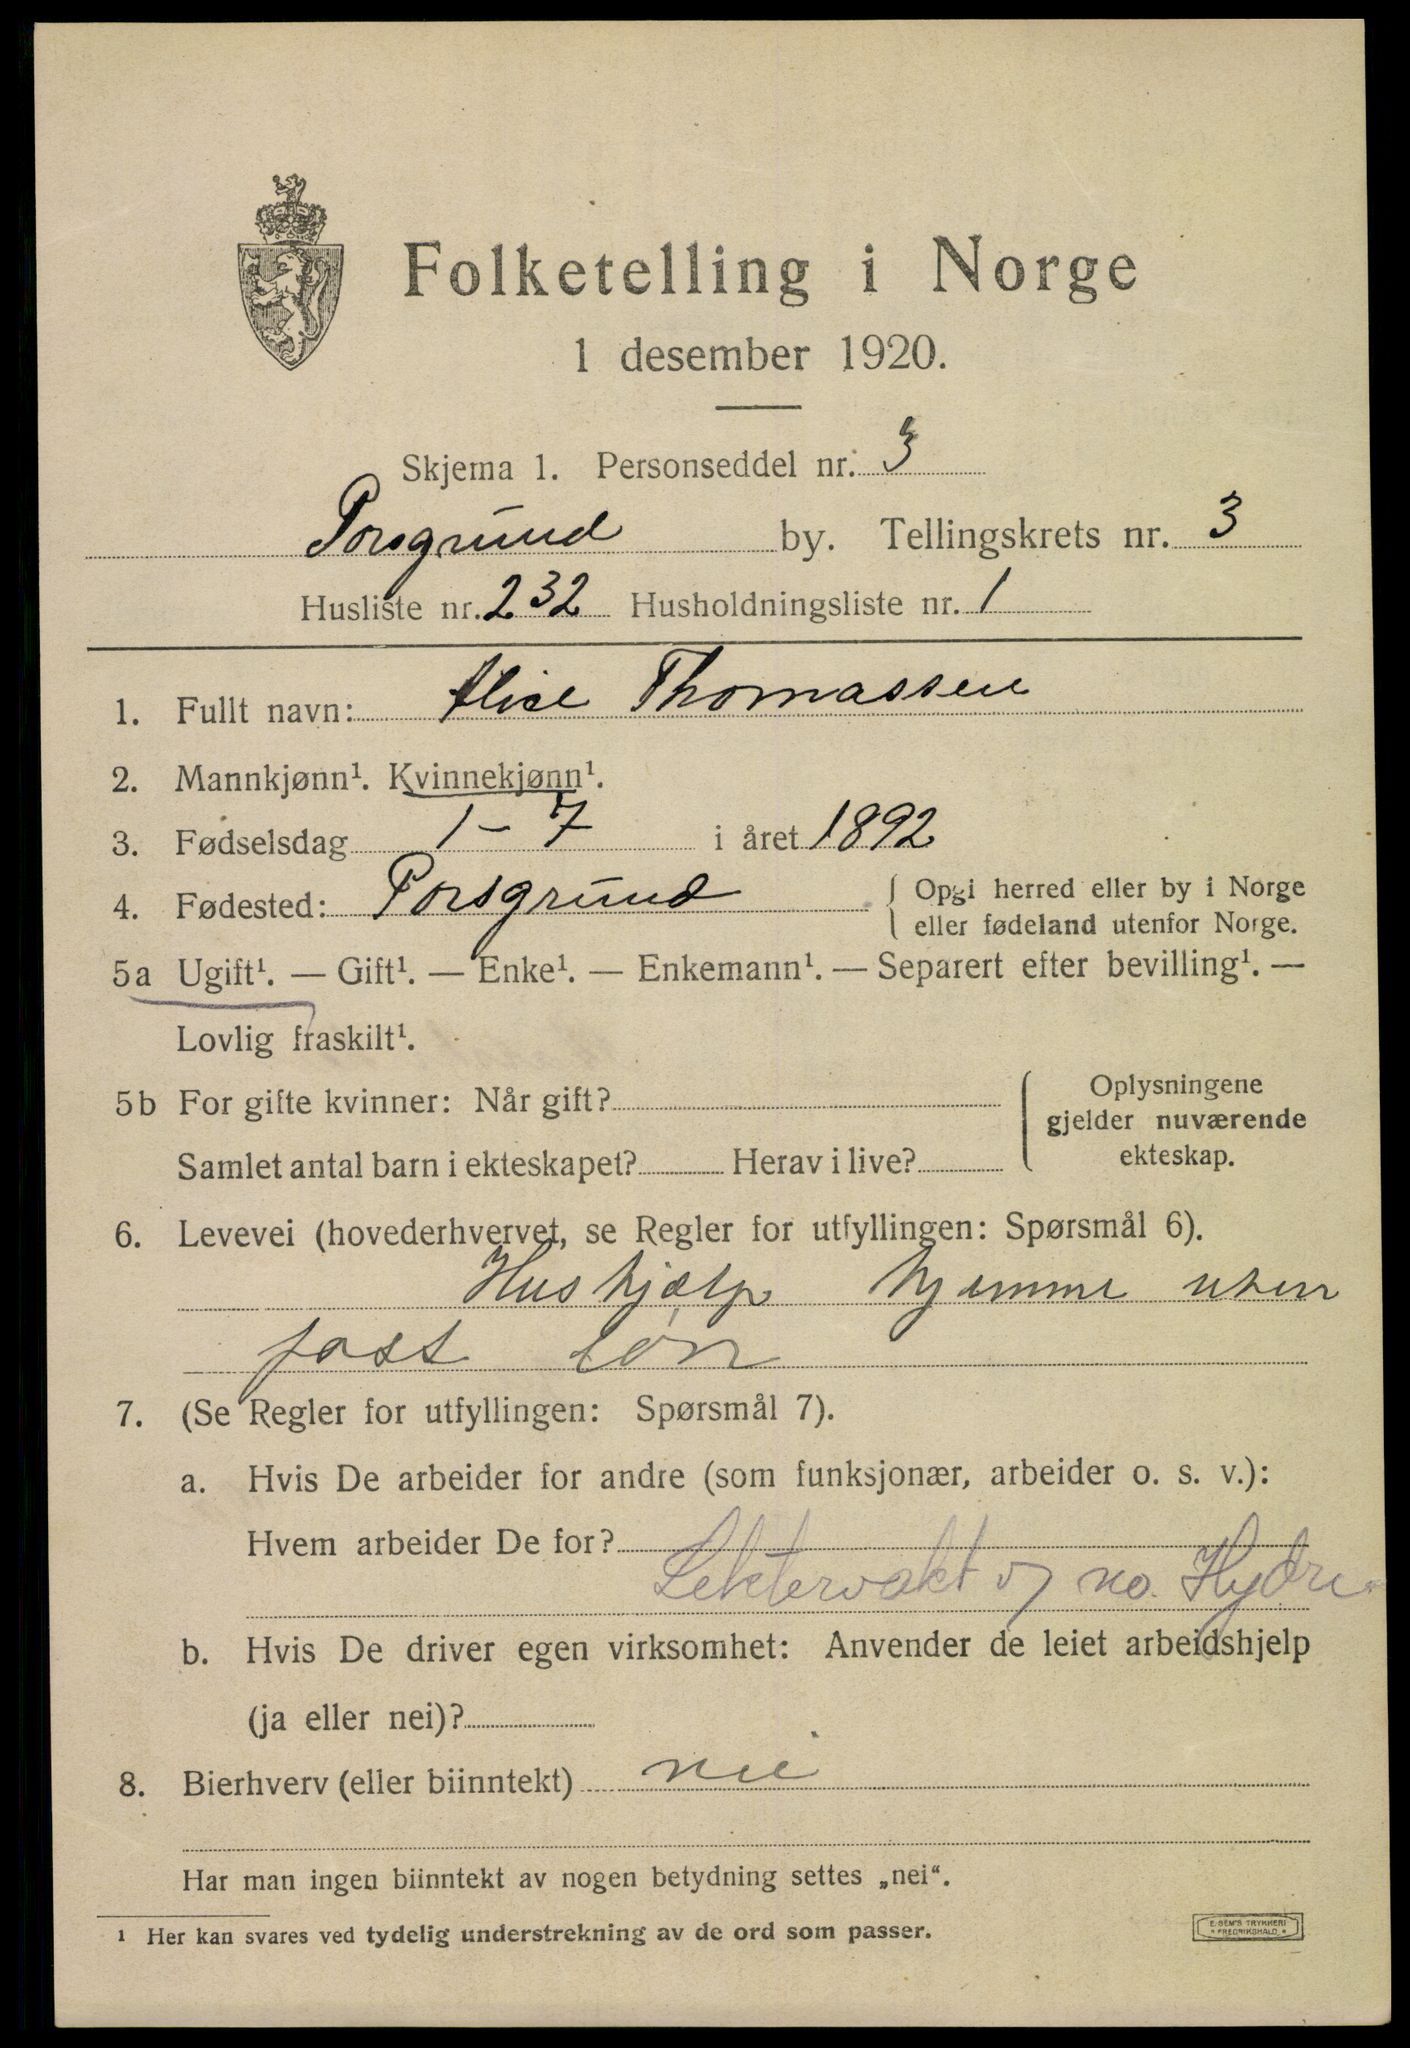 Folketelling i Norge
1 desember 1920.
Skjema 1. Personseddel nr. 3
Porsgrund by. Tellingskrets nr. 3
Husliste nr. 232 Husholdningsliste nr. 1
1. Fullt navn: Alise Thomassen
2. Mannkjønn¹. Kvinnekjønn¹.
3. Fødselsdag 1-7 i året 1892
4. Fødested: Porsgrund { Opgi herred eller by i Norge
eller fødeland utenfor Norge.
5a Ugift¹. — Gift¹. — Enke¹. — Enkemann¹. — Separert efter bevilling¹. —
Lovlig fraskilt¹.
5b For gifte kvinner: Når gift?
Samlet antal barn i ekteskapet? Herav i live?
Oplysningene
gjelder nuværende
ekteskap.
6. Levevei (hovederhvervet, se Regler for utfyllingen: Spørsmål 6).
Hushjælp hjemme uten
fast løn
7. (Se Regler for utfyllingen: Spørsmål 7).
a. Hvis De arbeider for andre (som funksjonær, arbeider o. s. v.):
Hvem arbeider De for?
Lektervakt v no. Hydro
b. Hvis De driver egen virksomhet: Anvender de leiet arbeidshjelp
(ja eller nei)?
8. Bierhverv (eller biinntekt) nei
Har man ingen biinntekt av nogen betydning settes „nei“.
¹ Her kan svares ved tydelig understrekning av de ord som passer.
E. SEM'S TRYKKERI
* FREDRIKSHALD *